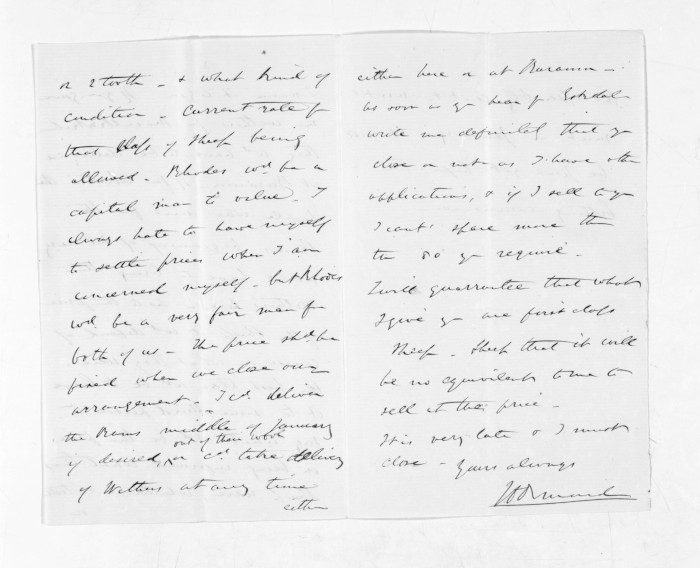 or 2 tooth - & what kind of
condition - Current rate for
that Class of Sheep being
allowed - Rhodes wd. be a
capital man to value. I
always hate to have myself
to settle prices when I am
concerned myself - but Rhodes
wd. be a very fair man for
both of us - The price shd. be
fixed when we close our
arrangement - I cd. deliver
the Rams middle of January
out of their wool
if desired, or cd. take delivery
of Wethers at any time
either
either here or at Ruramu -
as soon as you hear fr
write me definitely that you
close or not as I have other
applications, & if I sell to you
I can't spare more than
the 80 you require.
I will guarrantee that what
I give you are first class
Sheep - Sheep that it will
be no equivilent to me to
sell at the price -
It is very late & I must
close - Yours always
JD Ormond